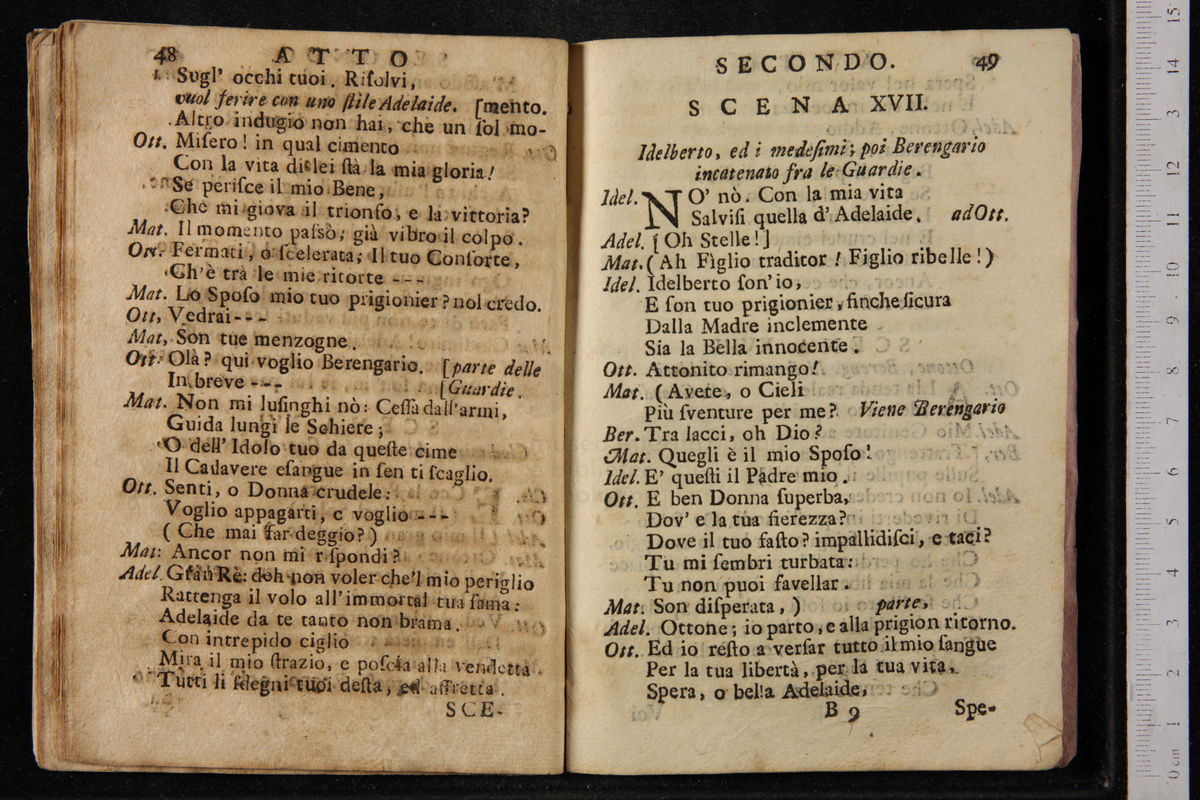 48 ATTO
Sugl' occhi tuoi. Risolvi,
vuol ferire con uno stile Adelaide. [mento.
Altro indugio non hai, che un sol mo-
Ott. Misero! in qual cimento
Con la vita di lei stà la mia gloria!
Se perisce il mio Bene,
Che mi giova il trionfo, e la vittoria?
Mat. Il momento passò; già vibro il colpo.
Ott. Fermati, o scelerata; Il tuo Consorte,
Ch'è trà le mie ritorte ---
Mat. Lo Sposo mio tuo prigionier? nol credo.
Ott, Vedrai---
Mat, Son tue menzogne.
Ott. Olà? qui voglio Berengario. [parte delle
In breve --- [Guardie.
Mat. Non mi lusinghi nò: Cessa dall'armi,
Guida lungi le Schiere;
O dell' Idolo tuo da queste cime
Il Cadavere esangue in sen ti scaglio.
Ott. Senti, o Donna crudele:
Voglio appagarti, e voglio ---
( Che mai far deggio? )
Mat: Ancor non mi r spondi?
Adel. Gran Rè: deh non voler che'l mio periglio
Rattenga il volo all'immortal tua fama:
Adelaide da te tanto non brama.
Con intrepido ciglio
Mira il mio strazio, e poscia alla vendetta
Tutti li sdegni tuoi desta, ed affretta.
SCE-
SECONDO. 49
SCENA XVII.
Idelberto, ed i medesimi; poi Berengario
incatenato fra le Guardie.
Idel. NO' nò. Con la mia vita
Salvisi quella d' Adelaide. ad Ott.
Adel. [ Oh Stelle! ]
Mat. ( Ah Figlio traditor! Figlio ribelle! )
Idel. Idelberto son' io,
E son tuo prigionier, finche sicura
Dalla Madre inclemente
Sia la Bella innocente.
Ott. Attonito rimango!
Mat. ( Avete, o Cieli
Più sventure per me? Viene Berengario
Ber. Tra lacci, oh Dio?
Mat. Quegli è il mio Sposo!
Idel. E' questi il Padre mio.
Ott. E ben Donna superba,
Dov' e la tua fierezza?
Dove il tuo fasto? impallidisci, e taci?
Tu mi sembri turbata:
Tu non puoi favellar.
Mat. Son disperata, ) parte,
Adel. Ottone; io parto, e alla prigion ritorno.
Ott. Ed io resto a versar tutto il mio sangue
Per la tua libertà, per la tua vita.
Spera, o bella Adelaide,
B 9 Spe-